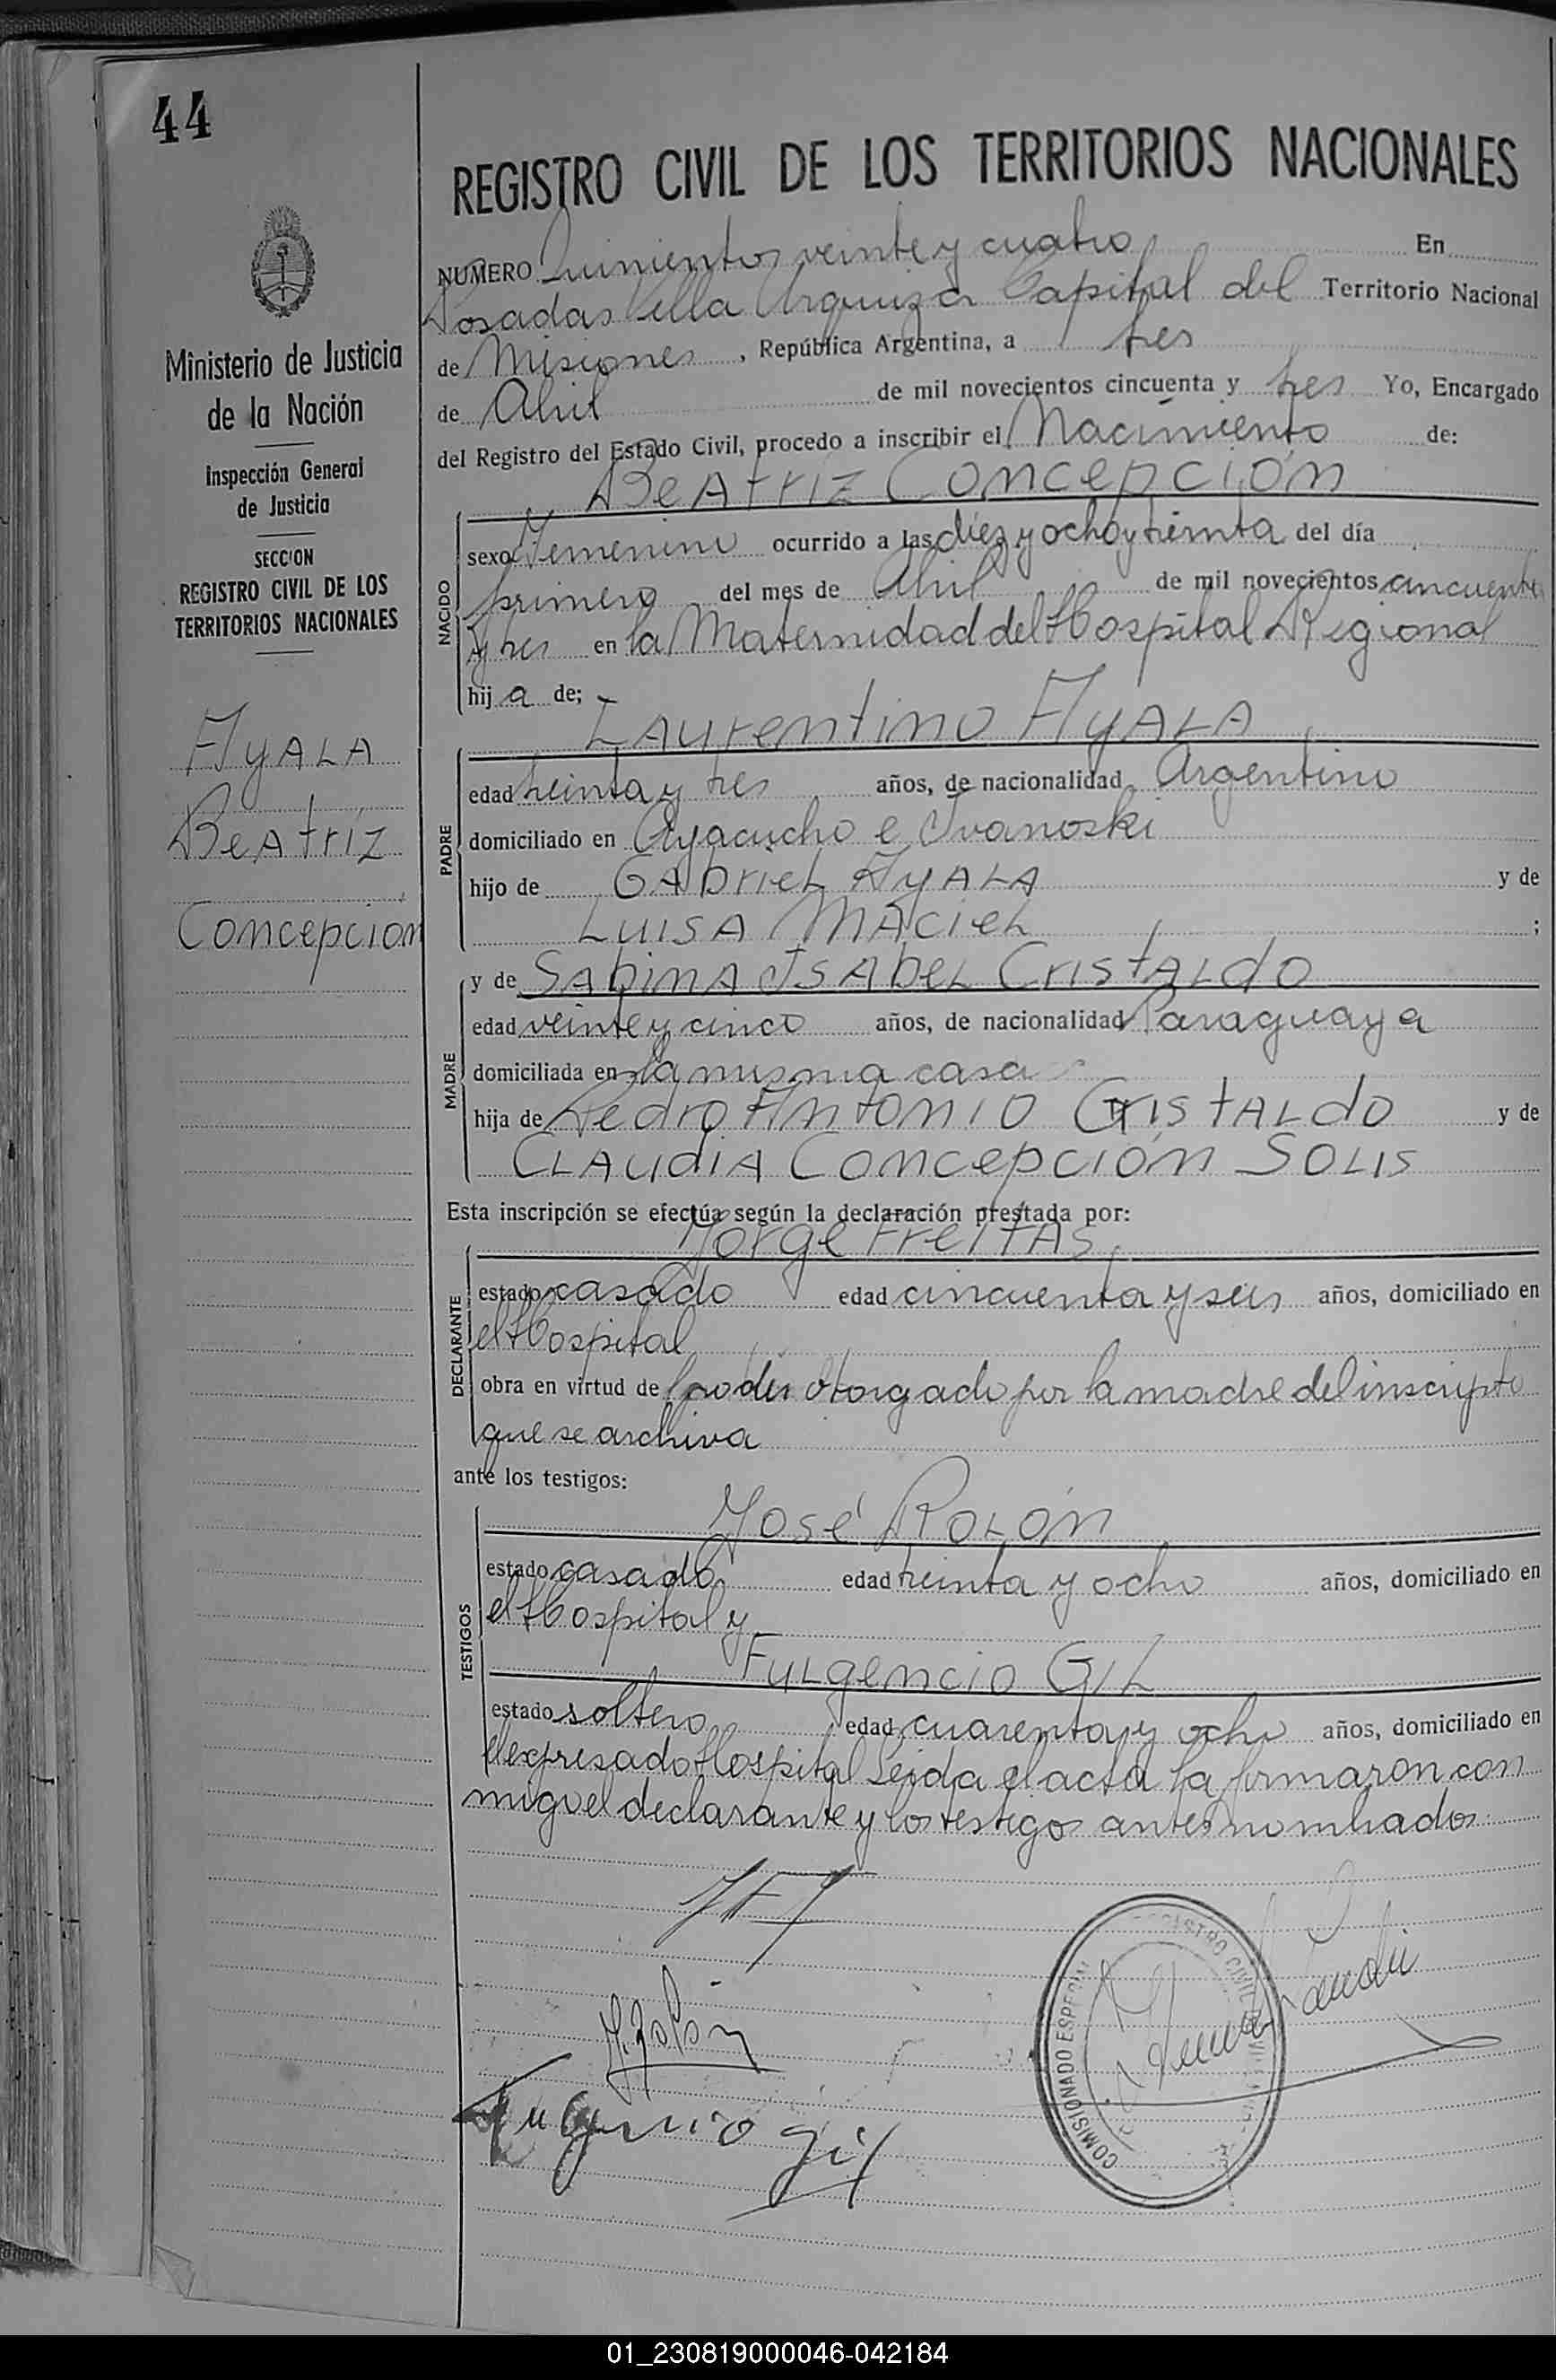 44
REGISTRO CIVIL DE LOS TERRITORIOS NACIONALES
Ministerio de Justicia
de la Nación
Inspección General
de Justicia
SECCION
REGISTRO CIVIL DE LOS
TERRITORIOS NACIONALES
AyALA
BeAtríz
Concepción
NUMERO Quinientos veinte y cuatro En
Posadas Villa Urquiza Capital del Territorio Nacional
de Misiones, República Argentina, a tres
de Abril de mil novecientos cincuenta y tres Yo, Encargado
del Registro del Estado Civil, procedo a inscribir el Nacimiento de:
BeAtríz Concepción
NACIDO
sexo Femenino ocurrido a las diez y ocho y treinta del día
primero del mes de Abril de mil novecientos cincuenta
y tres en la Maternidad del Hospital Regional
hija de;
LAurentino AyALA
PADRE
edad treinta y tres años, de nacionalidad Argentino
domiciliado en Ayacucho e Ivanoski
hijo de GAbrieL AyALA y de
LuisA MAcieL ;
y de SAbinA ISAbeL CristALdo
MADRE
edad veinte y cinco años, de nacionalidad Paraguaya
domiciliada en la misma casa
hija de Pedro Antonio CristALdo y de
CLAudiA Concepción SoLis
Esta inscripción se efectúa según la declaración prestada por:
Jorge FreitAs
DECLARANTE
estado casado edad cincuenta y seis años, domiciliado en
el Hospital
obra en virtud de poder otorgado por la madre del inscripto
que se archiva
ante los testigos:
José RoLón
TESTIGOS
estado casado edad treinta y ocho años, domiciliado en
el Hospital y
FuLgencio GiL
estado soltero edad cuarenta y ocho años, domiciliado en
el expresado Hospital Leida el acta la firmaron con
migo el declarante y los testigos antes nombrados
J. Rolón
COMISIONADO ESPECIAL
REGISTRO CIVIL
01_230819000046-042184